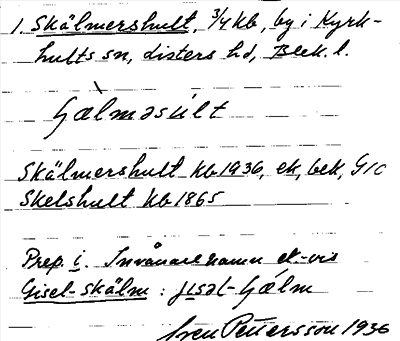 1. Skälmershult, 3/4 kb, by i Kyrk-
hults sn, Listers hd, Blek. l.
Skälmershult kb 1936, ek, bek, GIC
Skelshult kb 1865
Prep. i. Invånarenamn ek-vis
Gisel-Skälm:
Sven Pettersson 1936